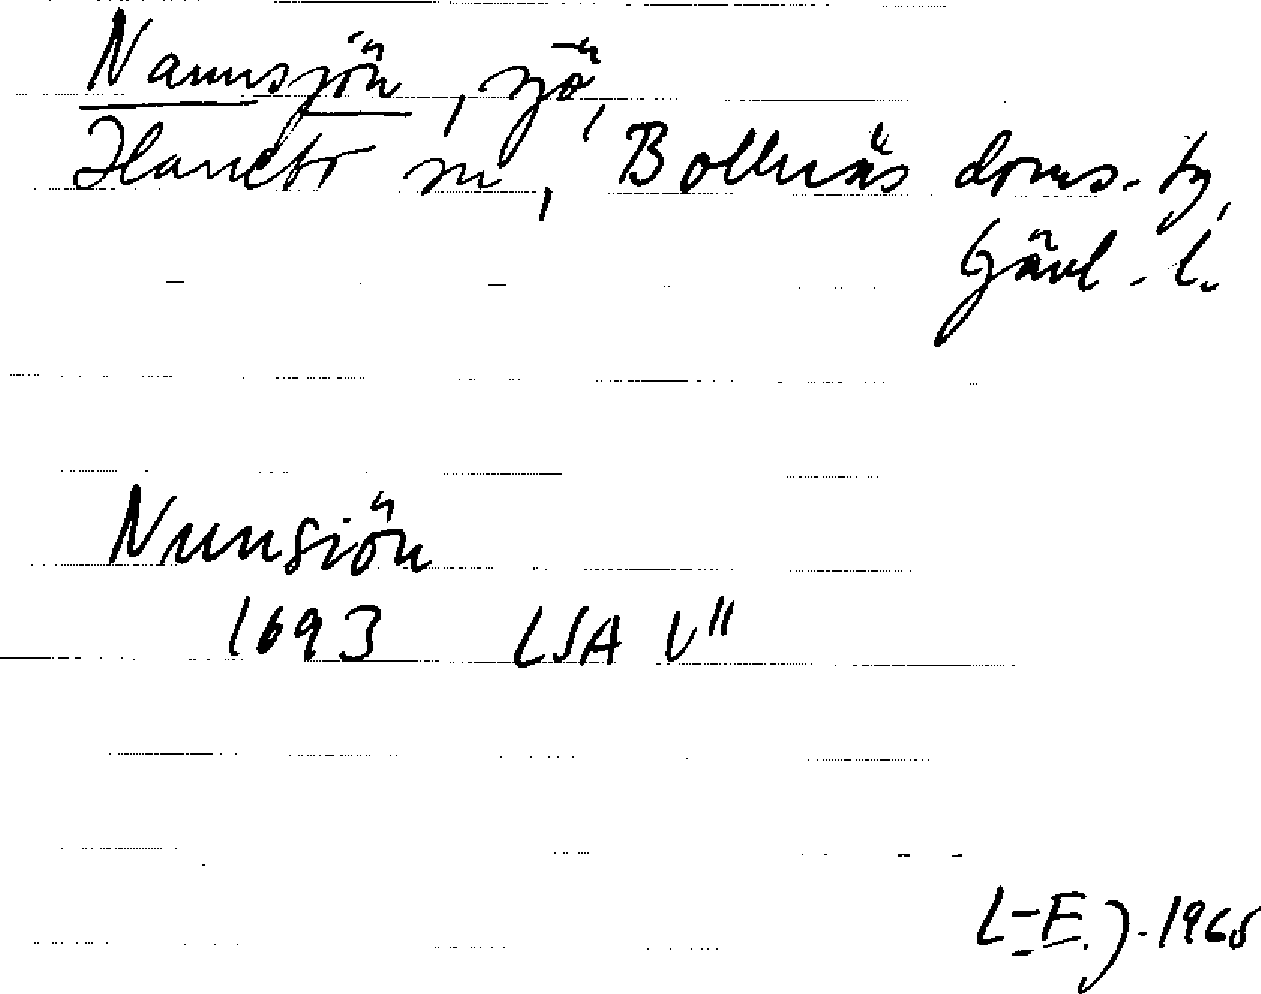 Nannsjön, sjö,
Hanebo sn, Bollnäs doms.-hg,
Gävl.-l.
Nunsiön
1693 LSA V"
L-E J-1965